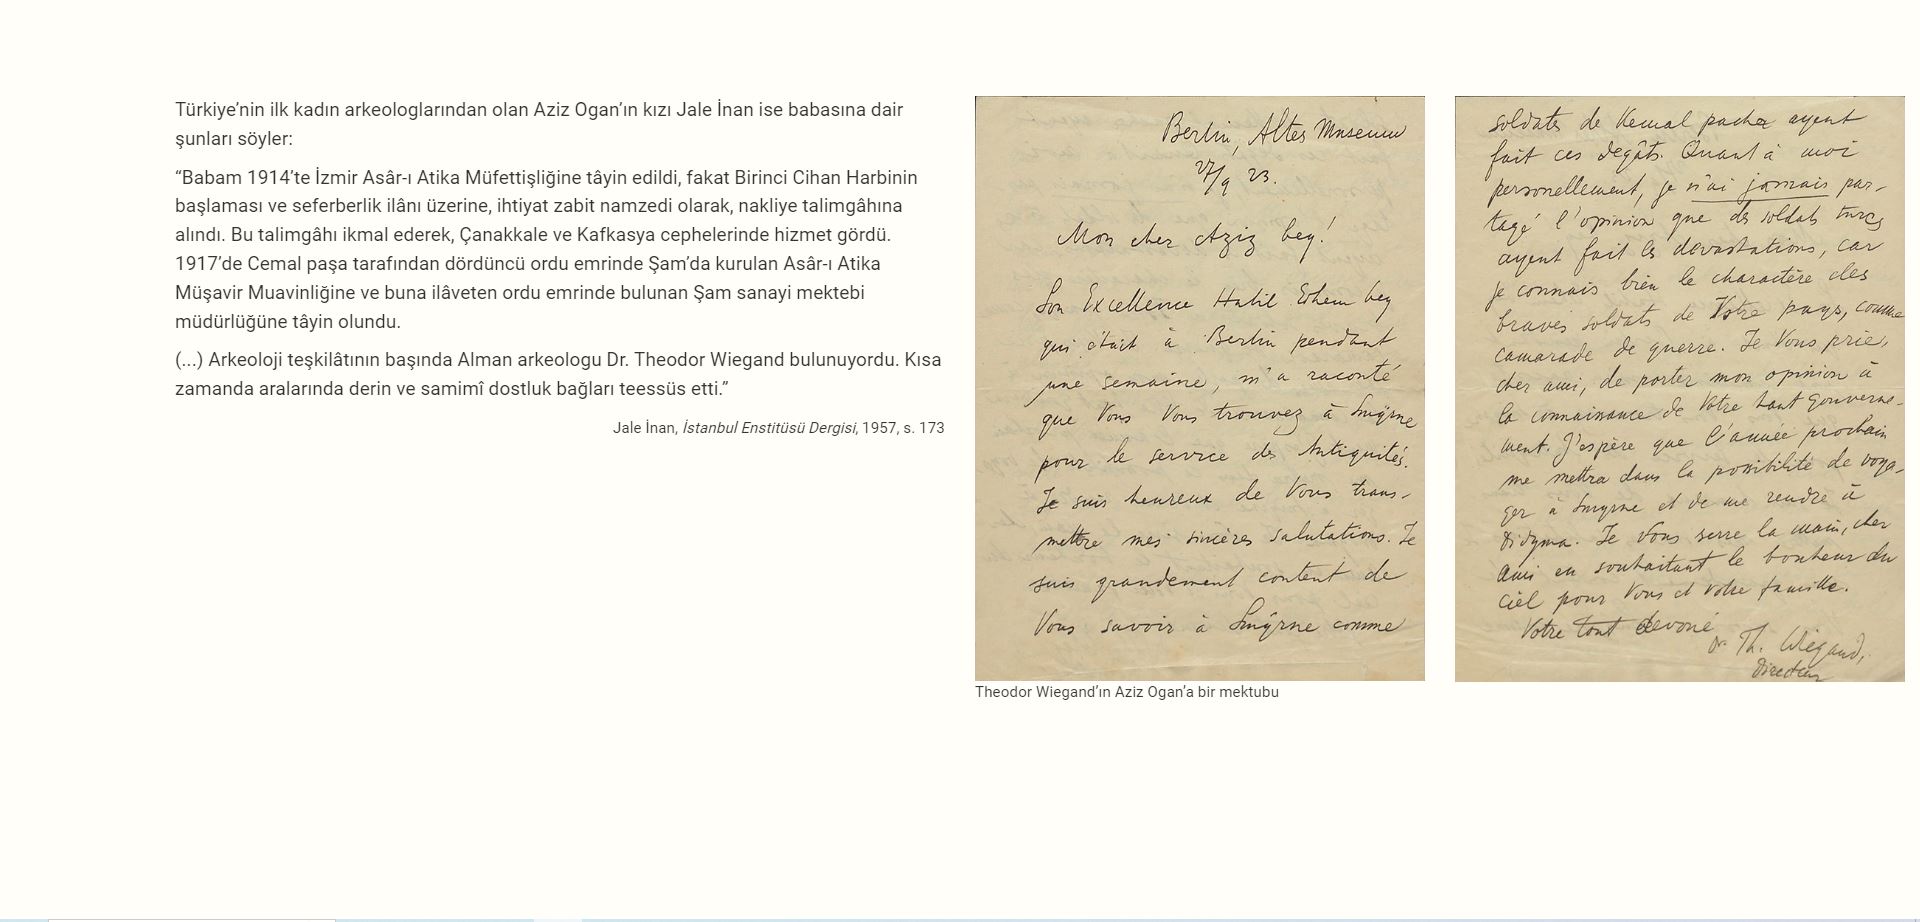 Türkiye’nin ilk kadın arkeologlarından olan Aziz Ogan’ın kızı Jale İnan ise babasına dair
şunları söyler:
“Babam 1914’te İzmir Asâr-ı Atika Müfettişliğine tâyin edildi, fakat Birinci Cihan Harbinin
başlaması ve seferberlik ilânı üzerine, ihtiyat zabit namzedi olarak, nakliye talimgâhına
alındı. Bu talimgâhı ikmal ederek, Çanakkale ve Kafkasya cephelerinde hizmet gördü.
1917’de Cemal paşa tarafından dördüncü ordu emrinde Şam’da kurulan Asâr-ı Atika
Müşavir Muavinliğine ve buna ilâveten ordu emrinde bulunan Şam sanayi mektebi
müdürlüğüne tâyin olundu.
(...) Arkeoloji teşkilâtının başında Alman arkeologu Dr. Theodor Wiegand bulunuyordu. Kısa
zamanda aralarında derin ve samimî dostluk bağları teessüs etti.”
Jale İnan, İstanbul Enstitüsü Dergisi, 1957, s. 173
Berlin, Altes Museum
27/9 23.
Mon cher Aziz bey!
Son Excellence Halil Edhem bey
qui était à Berlin pendant
une semaine, m'a raconté
que Vous Vous trouvez à Smyrne
pour le service des Antiquités.
Je suis heureux de Vous trans-
mettre mes sincères salutations. Je
suis grandement content de
Vous savoir à Smyrne comme
Theodor Wiegand’ın Aziz Ogan’a bir mektubu
soldats de Kemal pacha ayent
fait ces degâts. Quant à moi
personellement, je n'ai jamais par-
tagé l'opinion que des soldats turcs
ayent fait les devastations, car
je connais bien le charactère des
braves soldats de Votre pays, comme
camarade de guerre. Je Vous prie,
cher ami, de porter mon opinion à
la connaissance de Votre haut gouverne-
ment. J'espère que l'année prochain
me mettra dans la possibilité de voya-
ger à Smyrne et de me rendre à
Didyma. Je Vous serre la main, cher
ami en souhaitant le bonheur du
ciel pour Vous et Votre famille.
Votre tout devoué
Dr. Th. Wiegand,
Directeur